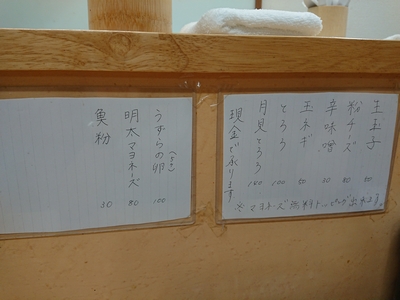 玉玉子 50
粉チーズ 50
辛味噌 50
玉ネギ 50
とろろ 100
月見とろろ 150
現金で承ります
※マヨネーズ無料トッピング出来ます。
うずらの卵(5こ) 100
明太マヨネーズ 80
魚粉 30